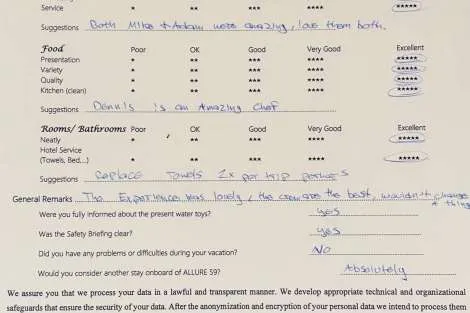 Service * ** *** **** *****
Suggestions Both Mike + Adam were amazing, love them both.
Food Poor OK Good Very Good Excellent
Presentation * ** *** **** *****
Variety * ** *** **** *****
Quality * ** *** **** *****
Kitchen (clean) * ** *** **** *****
Suggestions Dennis is an Amazing Chef
Rooms/ Bathrooms Poor OK Good Very Good Excellent
Neatly * ** *** **** *****
Hotel Service
(Towels, Bed...) * ** *** **** *****
Suggestions Replace Towels 2x per trip perhaps
General Remarks The Experience was lovely, the crew are the best, wouldn't change
a thing
Were you fully informed about the present water toys? yes
Was the Safety Briefing clear? yes
Did you have any problems or difficulties during your vacation? NO
Would you consider another stay onboard of ALLURE 59? Absolutely
We assure you that we process your data in a lawful and transparent manner. We develop appropriate technical and organizational
safeguards that ensure the security of your data. After the anonymization and encryption of your personal data we intend to process them